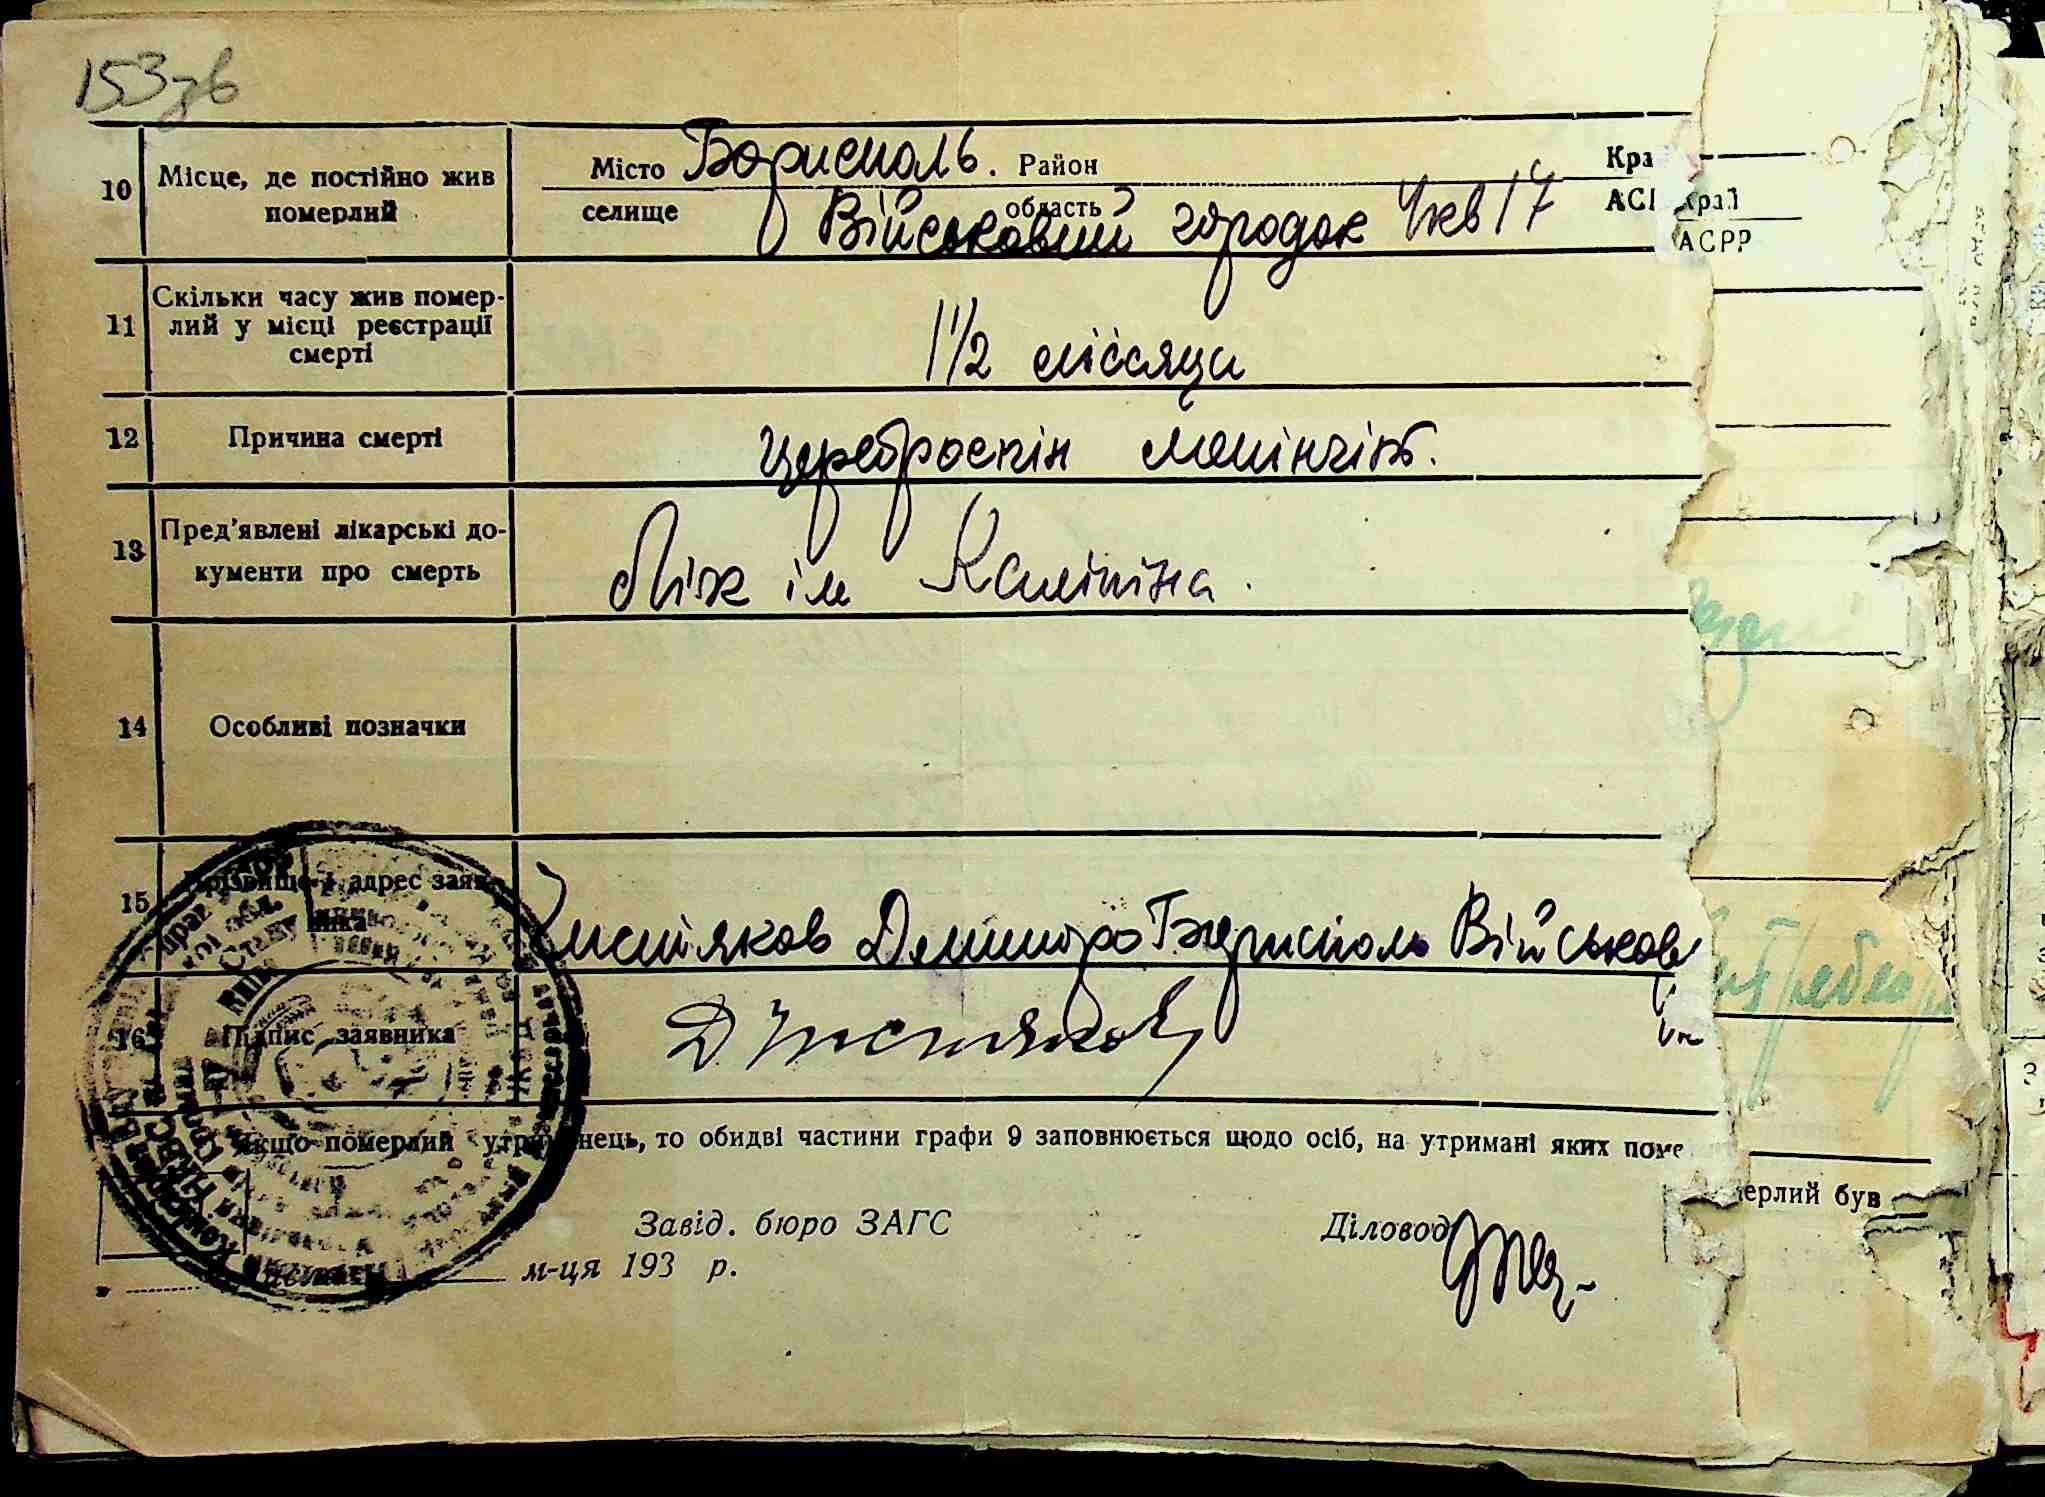 153зв
10 Місце, де постійно жив померлий
Місто Борисполь. Район
селище область Військовий городок 4 кв 17
Край
АСРР
11 Скільки часу жив помер-
лий у місці реєстрації
смерті
1 1/2 місяця
12 Причина смерті
Цереброспін менінгіт.
13 Пред'явлені лікарські до-
кументи про смерть
Лік ім Калініна.
14 Особливі позначки
15 Прізвище і адрес заяв-
ника
Чистяков Дмитро Бориспіль Військов
16 Підпис заявника
Д Чистяков
Якщо померлий утриманець, то обидві частини графи 9 заповнюється щодо осіб, на утримані яких поме
мерлий був
Завід. бюро ЗАГС
Діловод
м-ця 193 р.